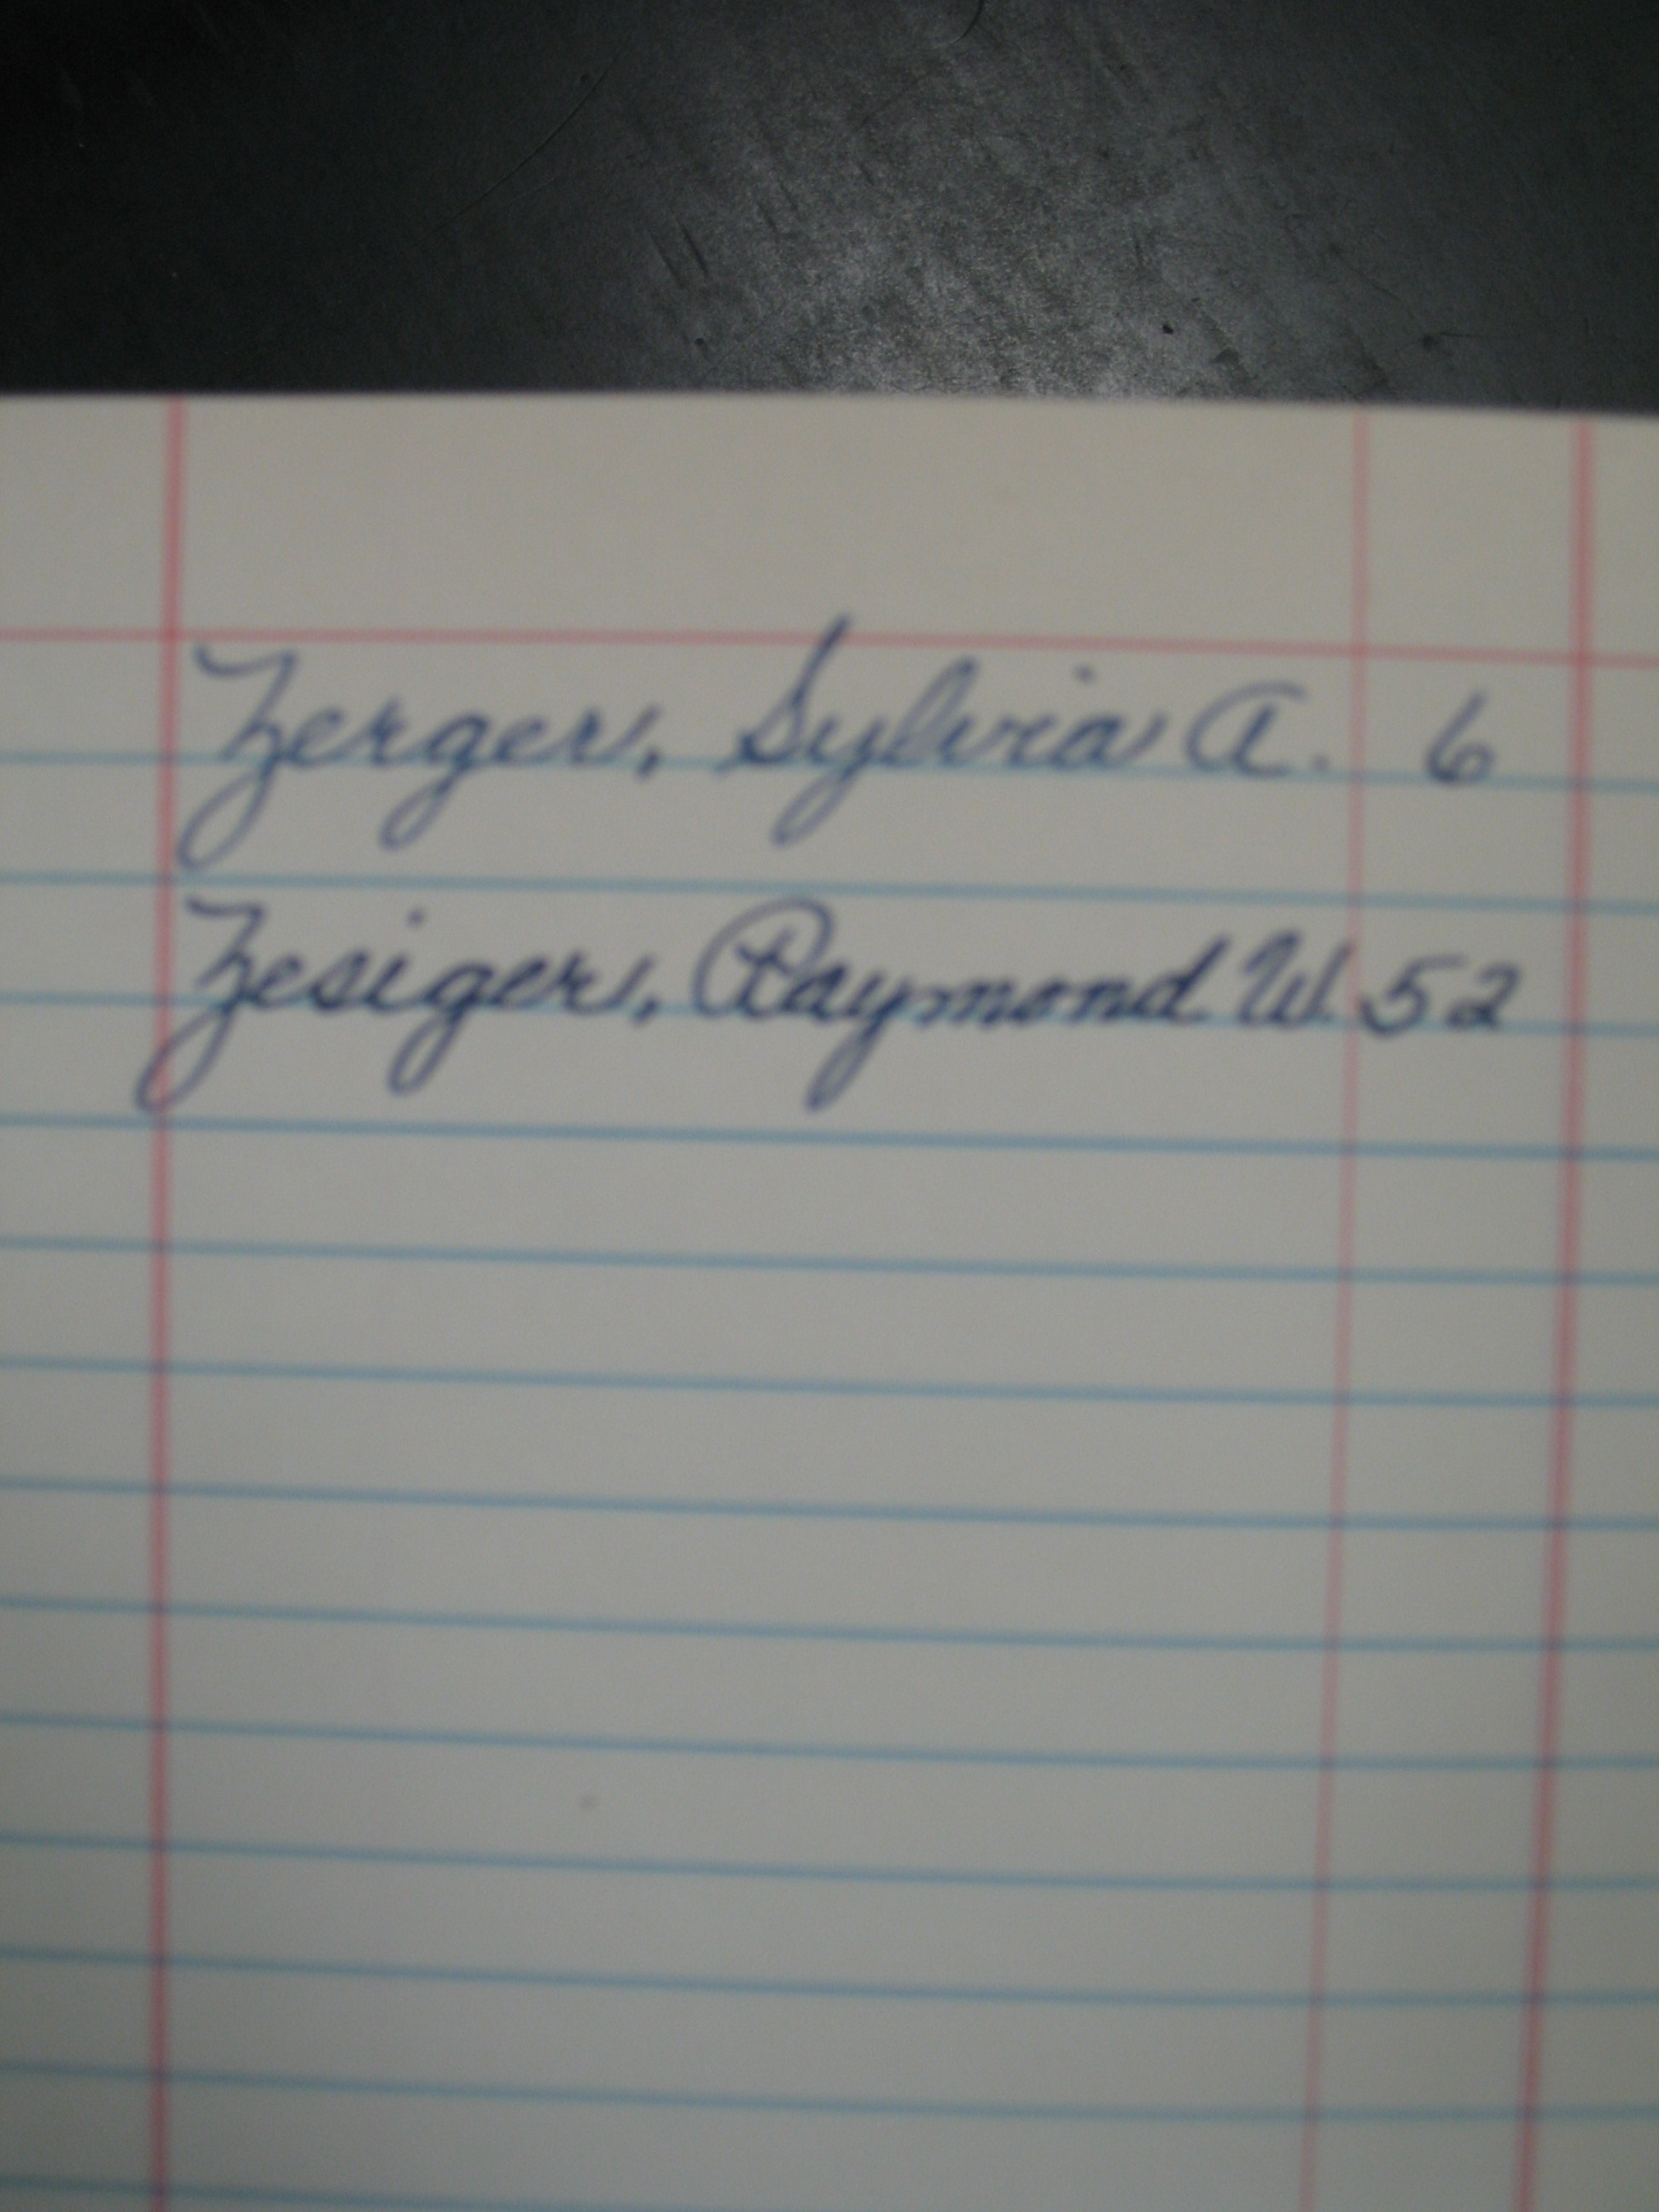 Zerger, Sylvia A. 6
Zesiger, Raymond W. 52